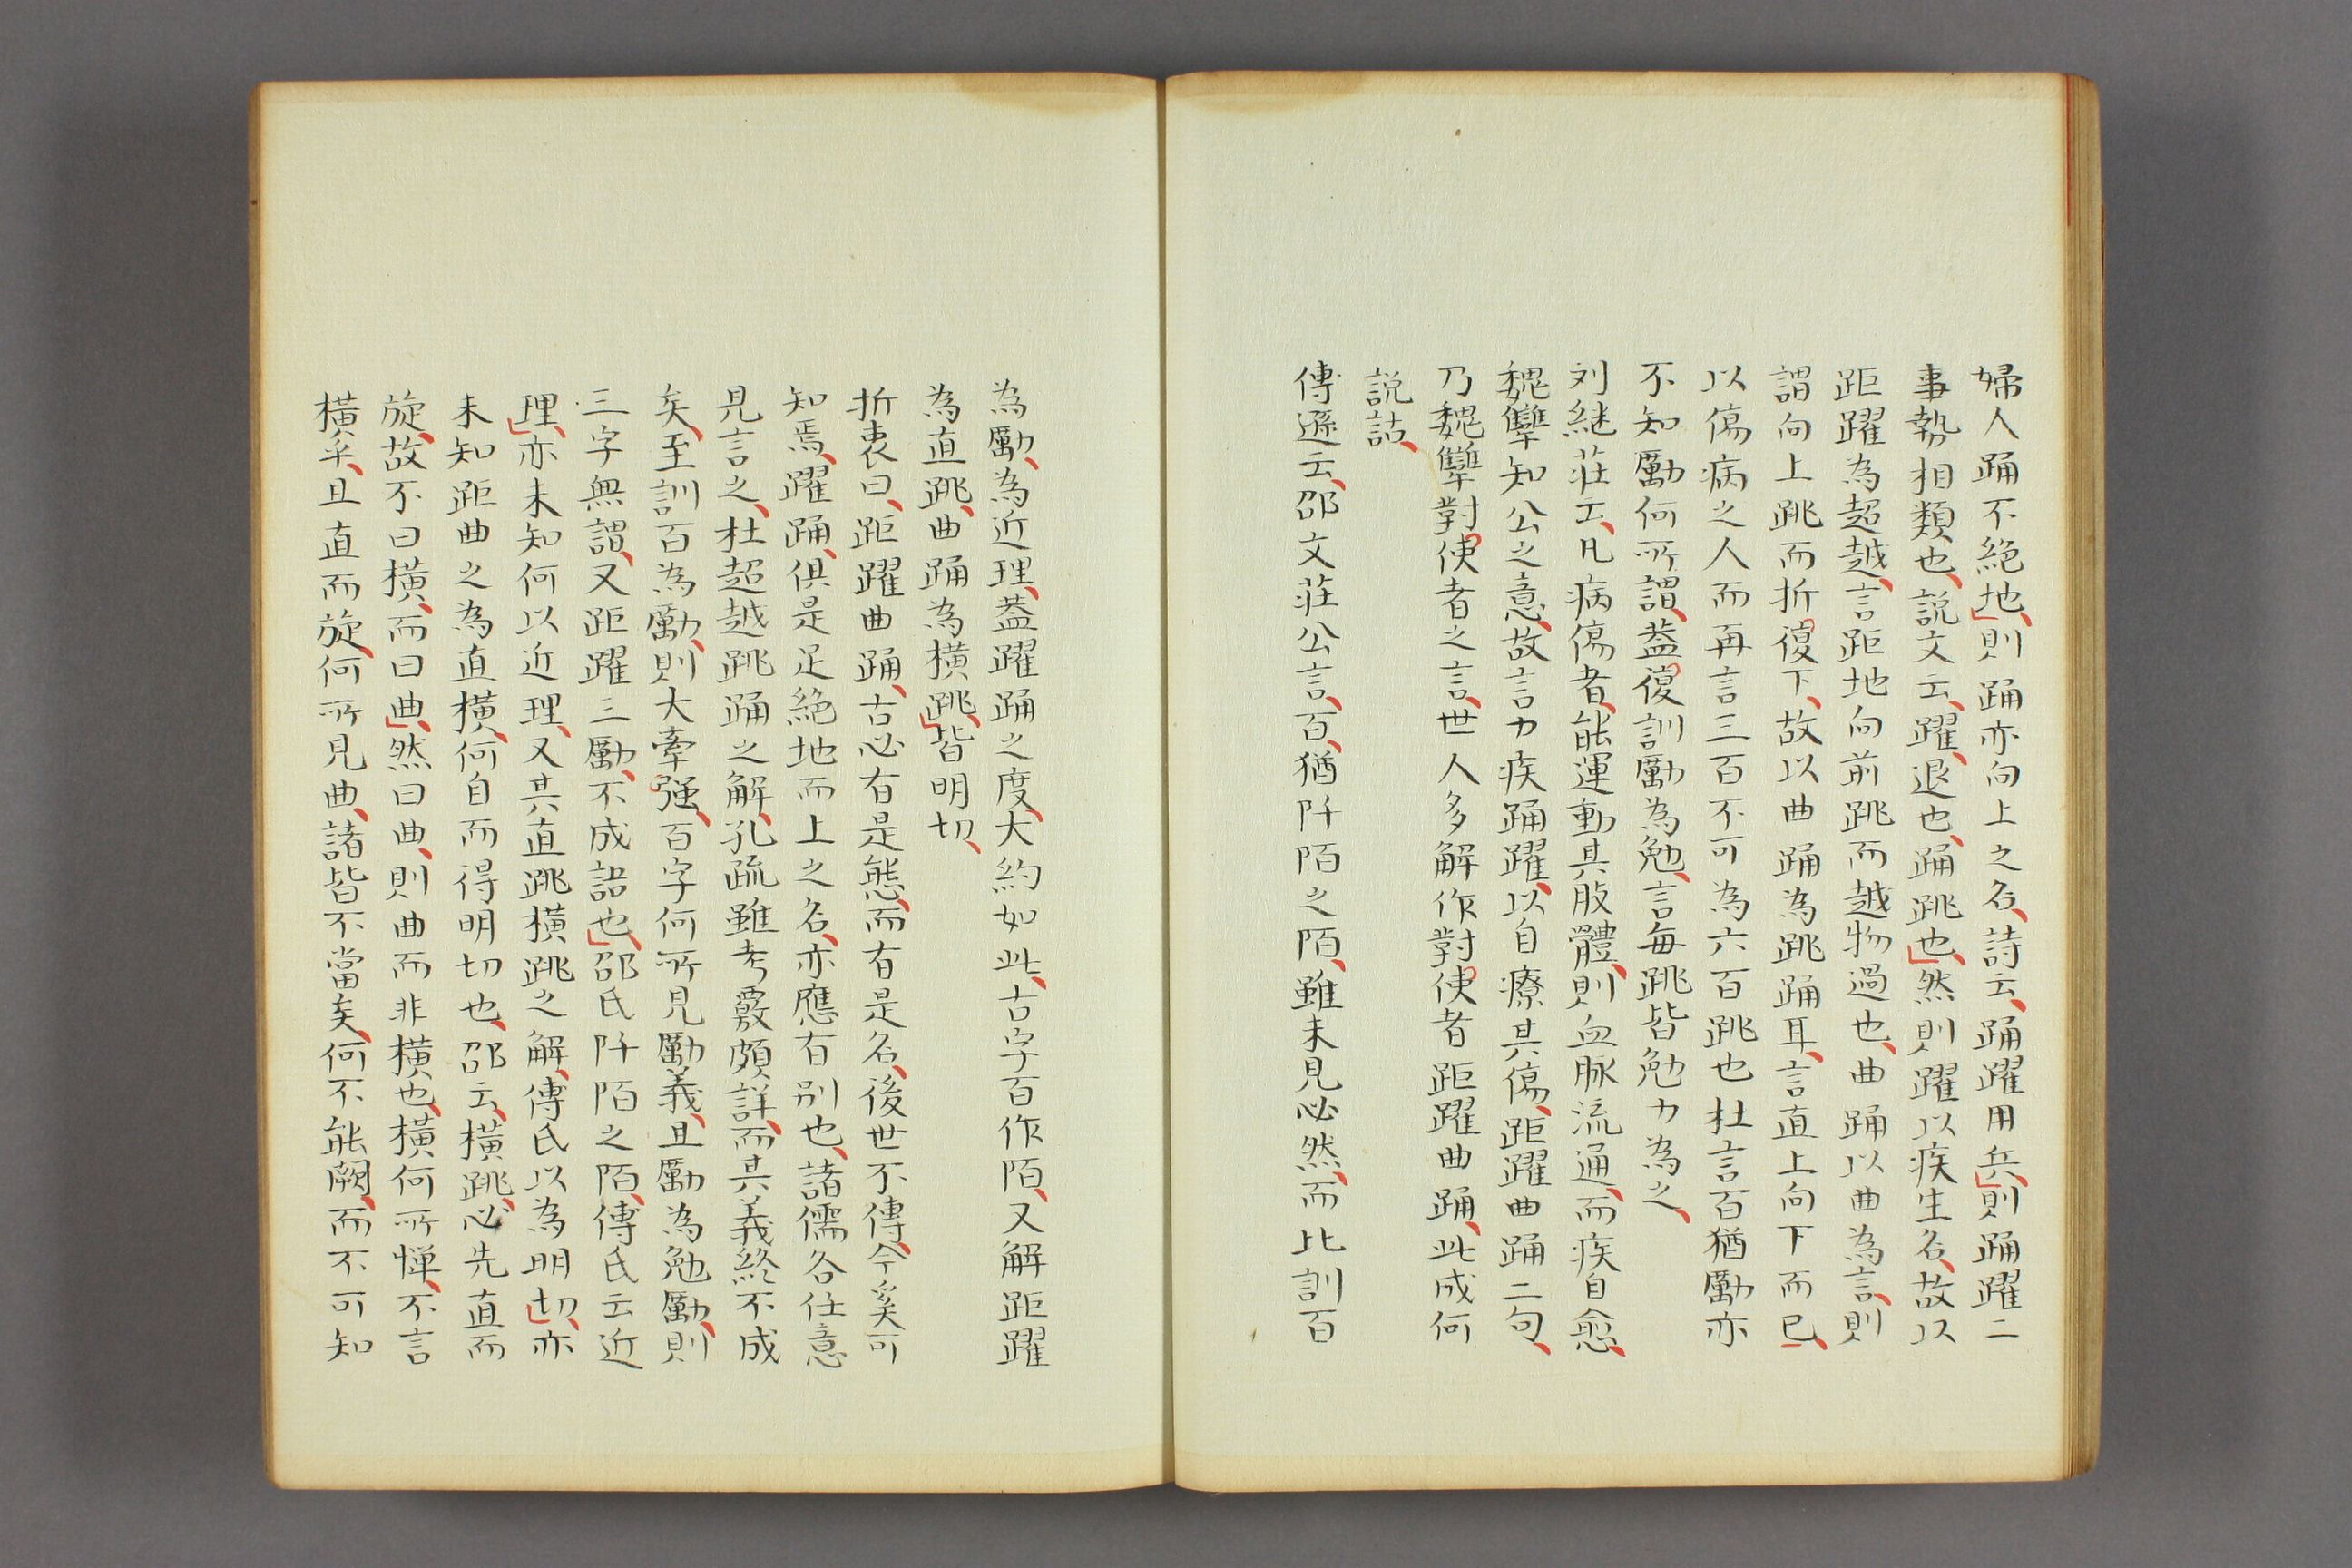 婦人踊不絶地、則踊亦向上之名、詩云、踊躍用兵、則踊躍二
事勢相類也、説文云、躍、退也、踊跳也、然則躍以疾生名、故以
距躍為超越、言距地向前跳而越物過也、曲踊以曲為言、則
謂向上跳而折復下、故以曲踊為跳踊耳、言直上向下而已、
以傷病之人而再言三百不可為六百跳也杜言百猶勵亦
不知勵何所謂、蓋復訓勵為勉、言每跳皆勉力為之、
刘継莊云、凡病傷者、能運動其肢體、則血脉流通、而疾自愈、
魏犨知公之意、故言力疾踊躍、以自療其傷、距躍曲踊二句、
乃魏犨對使者之言、世人多解作對使者距躍曲踊、此成何
説話、
傳遜云、邵文莊公言、百、猶阡陌之陌、雖未見必然、而比訓百
為勵、為近理、蓋躍踊之度、大約如此、古字百作陌、又解距躍
為直跳、曲踊為横跳、皆明切、
折衷曰、距躍曲踊、古必有是態、而有是名、後世不傳、今奚可
知焉、躍踊、倶是足絶地而上之名、亦應有別也、諸儒各任意
見言之、杜超越跳踊之解、孔疏雖考覈頗詳、而其義終不成
矣、至訓百為勵、則大牽强、百字何所見勵義、且勵為勉勵、則
三字無謂、又距躍三勵、不成語也、邵氏阡陌之陌、傳氏云近
理、亦未知何以近理、又其直跳横跳之解、傳氏以為明切、亦
未知距曲之為直横、何自而得明切也、邵云、横跳、必先直而
旋、故不曰横、而曰曲、然曰曲、則曲而非横也、横何所憚、不言
横乎、且直而旋、何所見曲、諸皆不當矣、何不能闕、而不可知